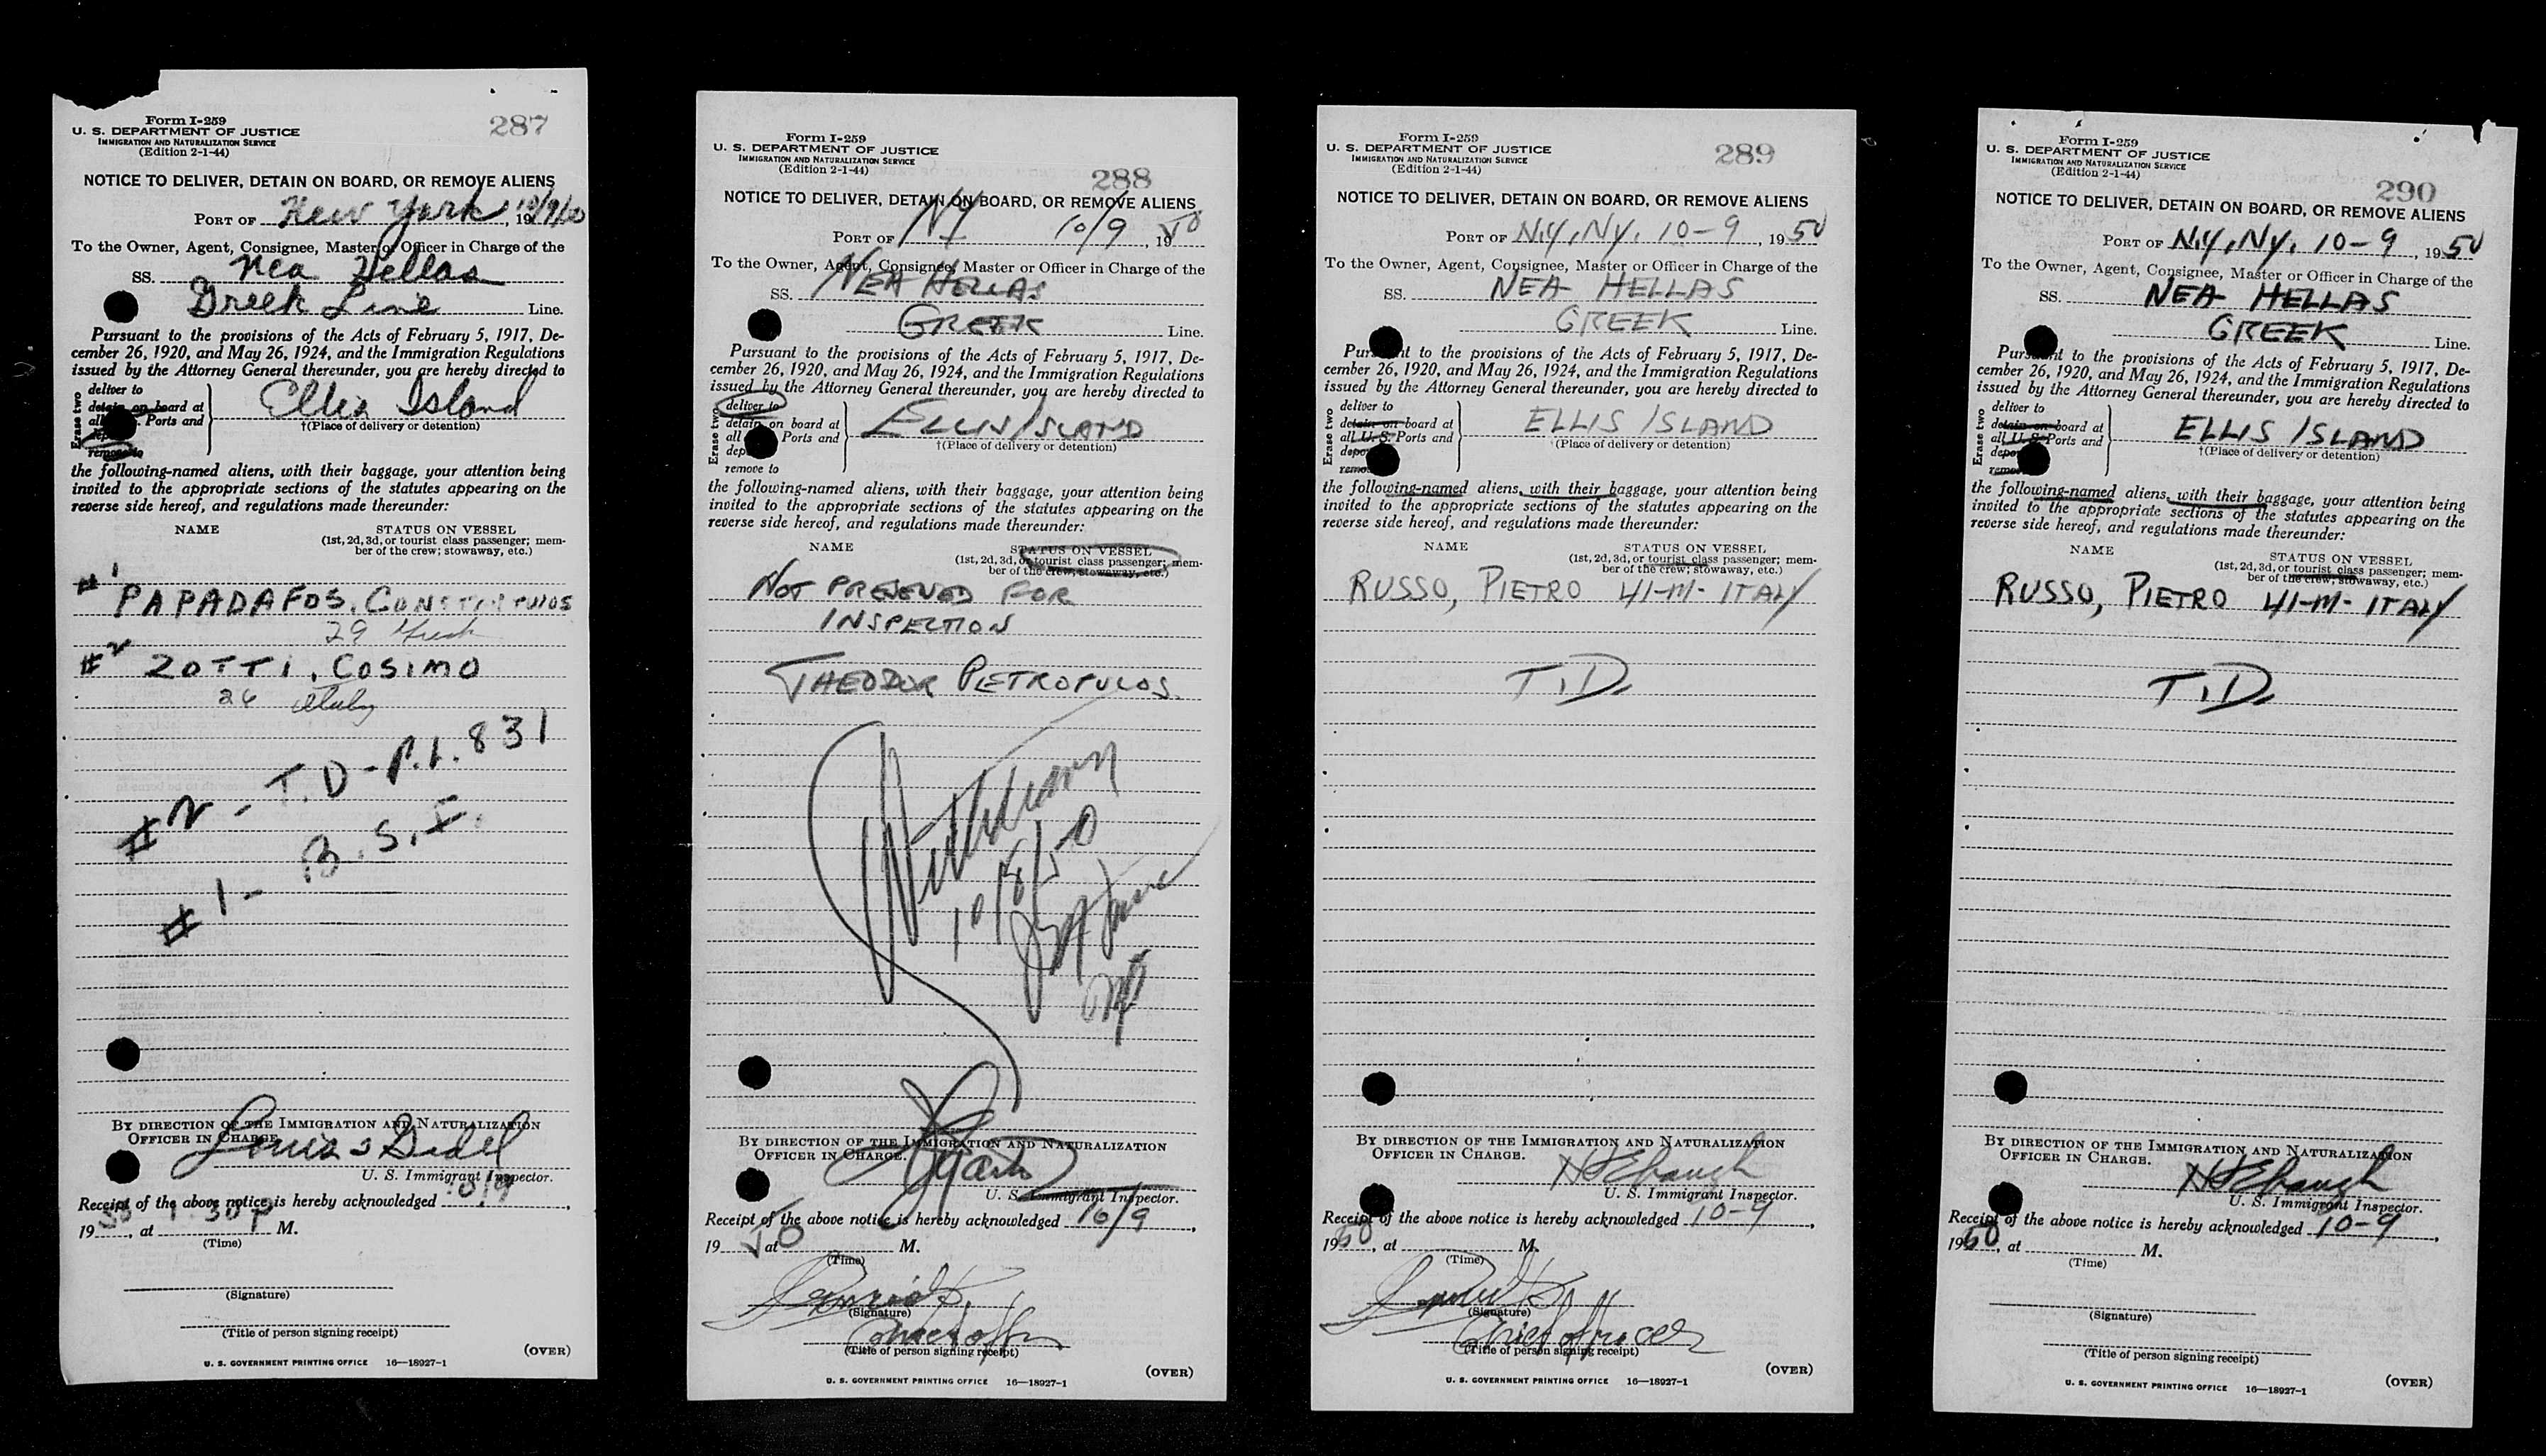 Form I-259
U. S. DEPARTMENT OF JUSTICE
IMMIGRATION AND NATURALIZATION SERVICE
(Edition 2-1-44)
287
NOTICE TO DELIVER, DETAIN ON BOARD, OR REMOVE ALIENS
PORT OF New York, 19 10/9/50
To the Owner, Agent, Consignee, Master or Officer in Charge of the
SS. Nea Hellas
Greek Line Line.
Pursuant to the provisions of the Acts of February 5, 1917, De-
cember 26, 1920, and May 26, 1924, and the Immigration Regulations
issued by the Attorney General thereunder, you are hereby directed to
Erase two
deliver to
detain on board at
all Ports and
remove to
Ellis Island
†(Place of delivery or detention)
the following-named aliens, with their baggage, your attention being
invited to the appropriate sections of the statutes appearing on the
reverse side hereof, and regulations made thereunder:
NAME
STATUS ON VESSEL
(1st, 2d, 3d, or tourist class passenger; mem-
ber of the crew; stowaway, etc.)
#1 PAPADAFOS,
29 Greek
#2 ZOTTI, COSIMO
26 Italy
#2 - T.D - P.L. 831
#1 - B.S.I.
BY DIRECTION OF THE IMMIGRATION AND NATURALIZATION
OFFICER IN CHARGE.
Louis
U. S. Immigrant Inspector.
Receipt of the above notice is hereby acknowledged 10/9,
1950, at 1:30 P M.
(Time)
(Signature)
(Title of person signing receipt)
(OVER)
U. S. GOVERNMENT PRINTING OFFICE 16—18927-1
Form I-259
U. S. DEPARTMENT OF JUSTICE
IMMIGRATION AND NATURALIZATION SERVICE
(Edition 2-1-44)
288
NOTICE TO DELIVER, DETAIN ON BOARD, OR REMOVE ALIENS
PORT OF NY 10/9, 1950
To the Owner, Agent, Consignee, Master or Officer in Charge of the
SS. NEA HELLAS
GREEK Line.
Pursuant to the provisions of the Acts of February 5, 1917, De-
cember 26, 1920, and May 26, 1924, and the Immigration Regulations
issued by the Attorney General thereunder, you are hereby directed to
Erase two
deliver to
detain on board at
all Ports and
remove to
ELLIS ISLAND
†(Place of delivery or detention)
the following-named aliens, with their baggage, your attention being
invited to the appropriate sections of the statutes appearing on the
reverse side hereof, and regulations made thereunder:
NAME
STATUS ON VESSEL
(1st, 2d, 3d, or tourist class passenger; mem-
ber of the crew; stowaway, etc.)
NOT PRESENED FOR
INSPECTION
THEODOR PETROPULOS.
BY DIRECTION OF THE IMMIGRATION AND NATURALIZATION
OFFICER IN CHARGE.
U. S. Immigrant Inspector.
Receipt of the above notice is hereby acknowledged 10/9,
1950 at M.
(Time)
(Signature)
(Title of person signing receipt)
(OVER)
U. S. GOVERNMENT PRINTING OFFICE 16—18927-1
Form I-259
U. S. DEPARTMENT OF JUSTICE
IMMIGRATION AND NATURALIZATION SERVICE
(Edition 2-1-44)
289
NOTICE TO DELIVER, DETAIN ON BOARD, OR REMOVE ALIENS
PORT OF N.Y, NY. 10-9, 1950
To the Owner, Agent, Consignee, Master or Officer in Charge of the
SS. NEA HELLAS
GREEK Line.
Pursuant to the provisions of the Acts of February 5, 1917, De-
cember 26, 1920, and May 26, 1924, and the Immigration Regulations
issued by the Attorney General thereunder, you are hereby directed to
Erase two
deliver to
detain on board at
all U. S. Ports and
remove
ELLIS ISLAND
†(Place of delivery or detention)
the following-named aliens, with their baggage, your attention being
invited to the appropriate sections of the statutes appearing on the
reverse side hereof, and regulations made thereunder:
NAME
STATUS ON VESSEL
(1st, 2d, 3d, or tourist class passenger; mem-
ber of the crew; stowaway, etc.)
RUSSO, PIETRO 41-M- ITALY
T.D.
BY DIRECTION OF THE IMMIGRATION AND NATURALIZATION
OFFICER IN CHARGE.
U. S. Immigrant Inspector.
Receipt of the above notice is hereby acknowledged 10-9,
1950, at M.
(Time)
(Signature)
Chief officer
(Title of person signing receipt)
(OVER)
U. S. GOVERNMENT PRINTING OFFICE 16—18927-1
Form I-259
U. S. DEPARTMENT OF JUSTICE
IMMIGRATION AND NATURALIZATION SERVICE
(Edition 2-1-44)
290
NOTICE TO DELIVER, DETAIN ON BOARD, OR REMOVE ALIENS
PORT OF N.Y, NY. 10-9, 1950
To the Owner, Agent, Consignee, Master or Officer in Charge of the
SS. NEA HELLAS
GREEK Line.
Pursuant to the provisions of the Acts of February 5, 1917, De-
cember 26, 1920, and May 26, 1924, and the Immigration Regulations
issued by the Attorney General thereunder, you are hereby directed to
Erase two
deliver to
detain on board at
all U. S. Ports and
remove
ELLIS ISLAND
†(Place of delivery or detention)
the following-named aliens, with their baggage, your attention being
invited to the appropriate sections of the statutes appearing on the
reverse side hereof, and regulations made thereunder:
NAME
STATUS ON VESSEL
(1st, 2d, 3d, or tourist class passenger; mem-
ber of the crew; stowaway, etc.)
RUSSO, PIETRO 41-M- ITALY
T.D.
BY DIRECTION OF THE IMMIGRATION AND NATURALIZATION
OFFICER IN CHARGE.
U. S. Immigrant Inspector.
Receipt of the above notice is hereby acknowledged 10-9,
1950, at M.
(Time)
(Signature)
(Title of person signing receipt)
(OVER)
U. S. GOVERNMENT PRINTING OFFICE 16—18927-1